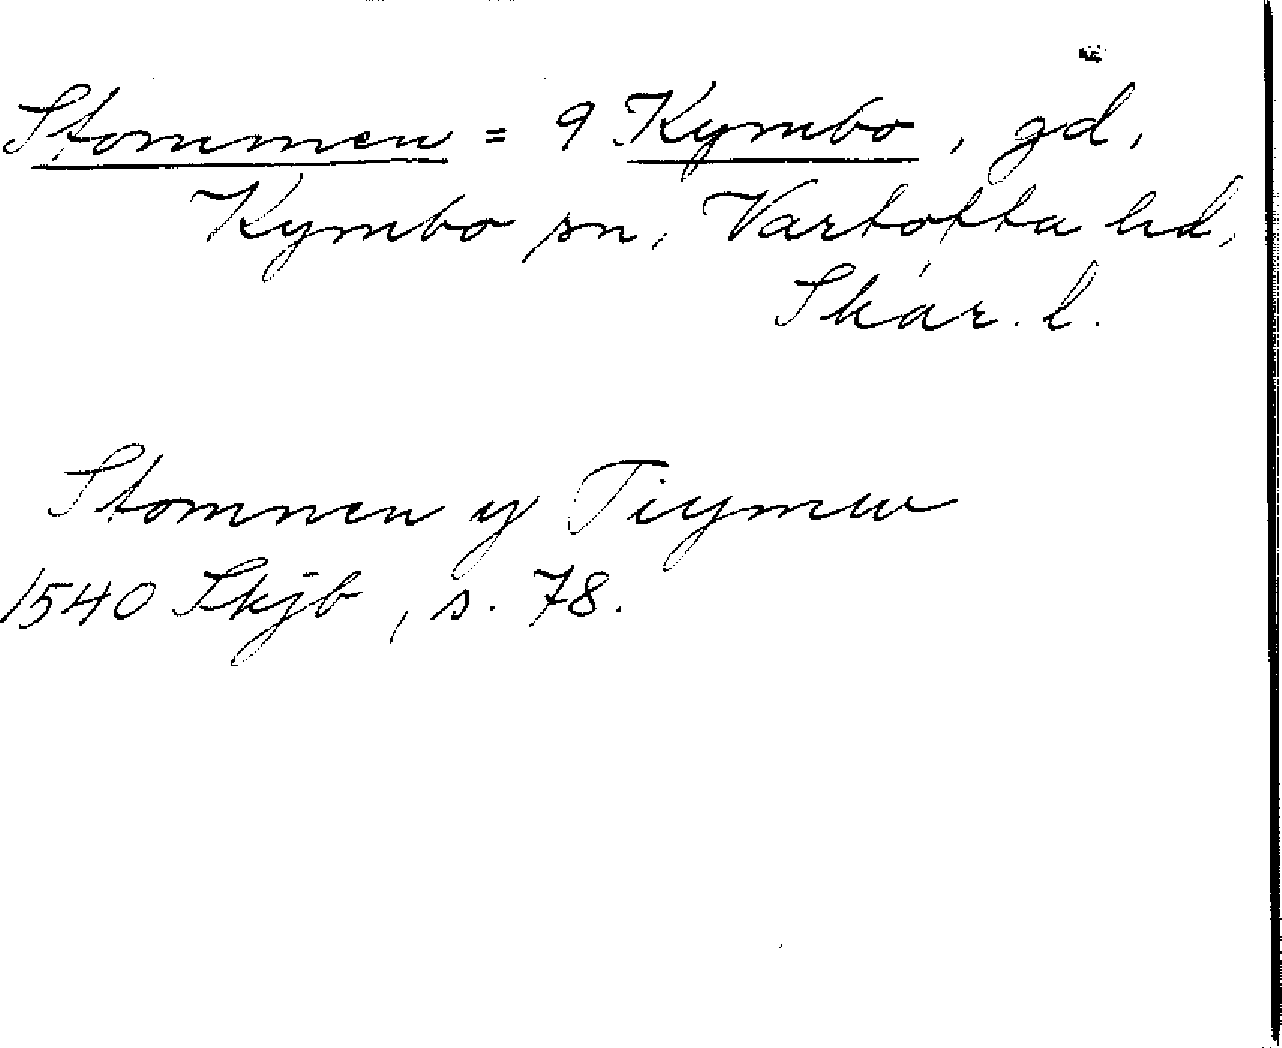 Stommen = 9 Kymbo, gd,
Kymbo sn, Vartofta hd,
Skar. l.
Stomnen y Tiymew
1540 Skjb, s. 78.